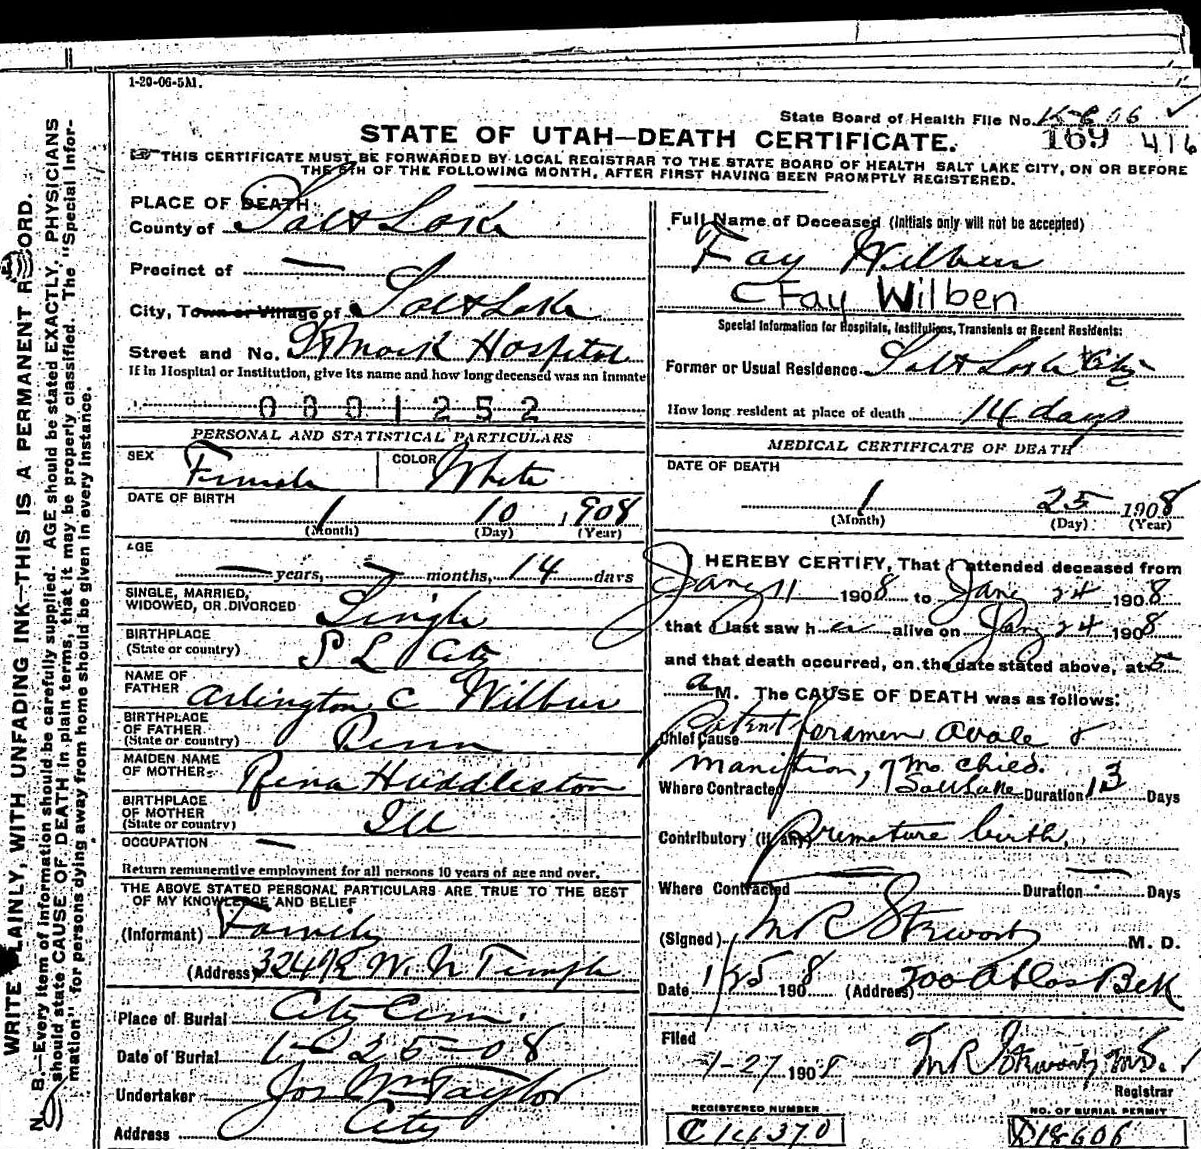 1-29-06-5M.
State Board of Health File No.
STATE OF UTAH—DEATH CERTIFICATE.
169 416
THIS CERTIFICATE MUST BE FORWARDED BY LOCAL REGISTRAR TO THE STATE BOARD OF HEALTH SALT LAKE CITY, ON OR BEFORE
THE 5TH OF THE FOLLOWING MONTH, AFTER FIRST HAVING BEEN PROMPTLY REGISTERED.
PLACE OF DEATH:
County of Salt Lake
Precinct of —
City, Town or Village of Salt Lake
Street and No. St Mark Hospital
If in Hospital or Institution, give its name and how long deceased was an inmate
0001252
PERSONAL AND STATISTICAL PARTICULARS
SEX Female COLOR White
DATE OF BIRTH
1 10 1908
(Month) (Day) (Year)
AGE
— years, — months, 14 days
SINGLE, MARRIED,
WIDOWED, OR DIVORCED Single
BIRTHPLACE
(State or country) S L City
NAME OF
FATHER Arlington C Wilbur
BIRTHPLACE
OF FATHER
(State or country) Penn
MAIDEN NAME
OF MOTHER Rena Huddleston
BIRTHPLACE
OF MOTHER
(State or country) Ill
OCCUPATION —
Return remunerative employment for all persons 10 years of age and over.
THE ABOVE STATED PERSONAL PARTICULARS ARE TRUE TO THE BEST
OF MY KNOWLEDGE AND BELIEF
(Informant) Family
(Address) W. N Temple
Place of Burial City Cem.
Date of Burial 1-25-08
Undertaker Jos Wm Taylor
Address City
Full Name of Deceased (Initials only will not be accepted)
Fay Wilbur
Fay Wilben
Special Information for Hospitals, Institutions, Transients or Recent Residents:
Former or Usual Residence Salt Lake City
How long resident at place of death 14 days
MEDICAL CERTIFICATE OF DEATH
DATE OF DEATH
1 25 1908
(Month) (Day) (Year)
I HEREBY CERTIFY, That I attended deceased from
Jany 11 1908 to Jany 24 1908
that I last saw her alive on Jany 24 1908
and that death occurred, on the date stated above, at 5
a M. The CAUSE OF DEATH was as follows:
Chief Cause Patent foramen ovale &
7 mo. child.
Where Contracted Salt Lake Duration 13 Days
Contributory (if any) premature birth.
Where Contracted — Duration — Days
(Signed) M. D.
Date 1/25 1908 (Address) 700 Atlas Blk
Filed
1-27 1908
Registrar
REGISTERED NUMBER
C 14370
NO. OF BURIAL PERMIT
D 18606
WRITE PLAINLY, WITH UNFADING INK—THIS IS A PERMANENT RECORD.
N. B.—Every item of information should be carefully supplied. AGE should be stated EXACTLY. PHYSICIANS
should state CAUSE OF DEATH in plain terms, that it may be properly classified. The "Special Infor-
mation" for persons dying away from home should be given in every instance.